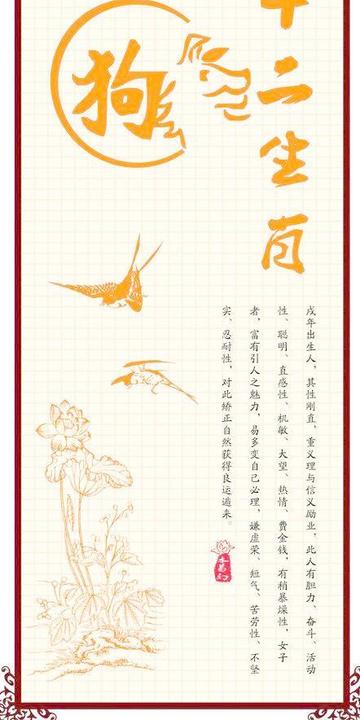 十二生肖
狗
戌年出生人，其性刚直，重义理与信义励业，此人有胆力、奋斗、活动
性、聪明、直感性、机敏、大望、热情、费金钱，有稍暴燥性，女子
者，富有引人之魅力，易多变自己必理，嫌虚荣、短气、苦劳性、不坚
实、忍耐性，对此矫正自然获得良运通来。